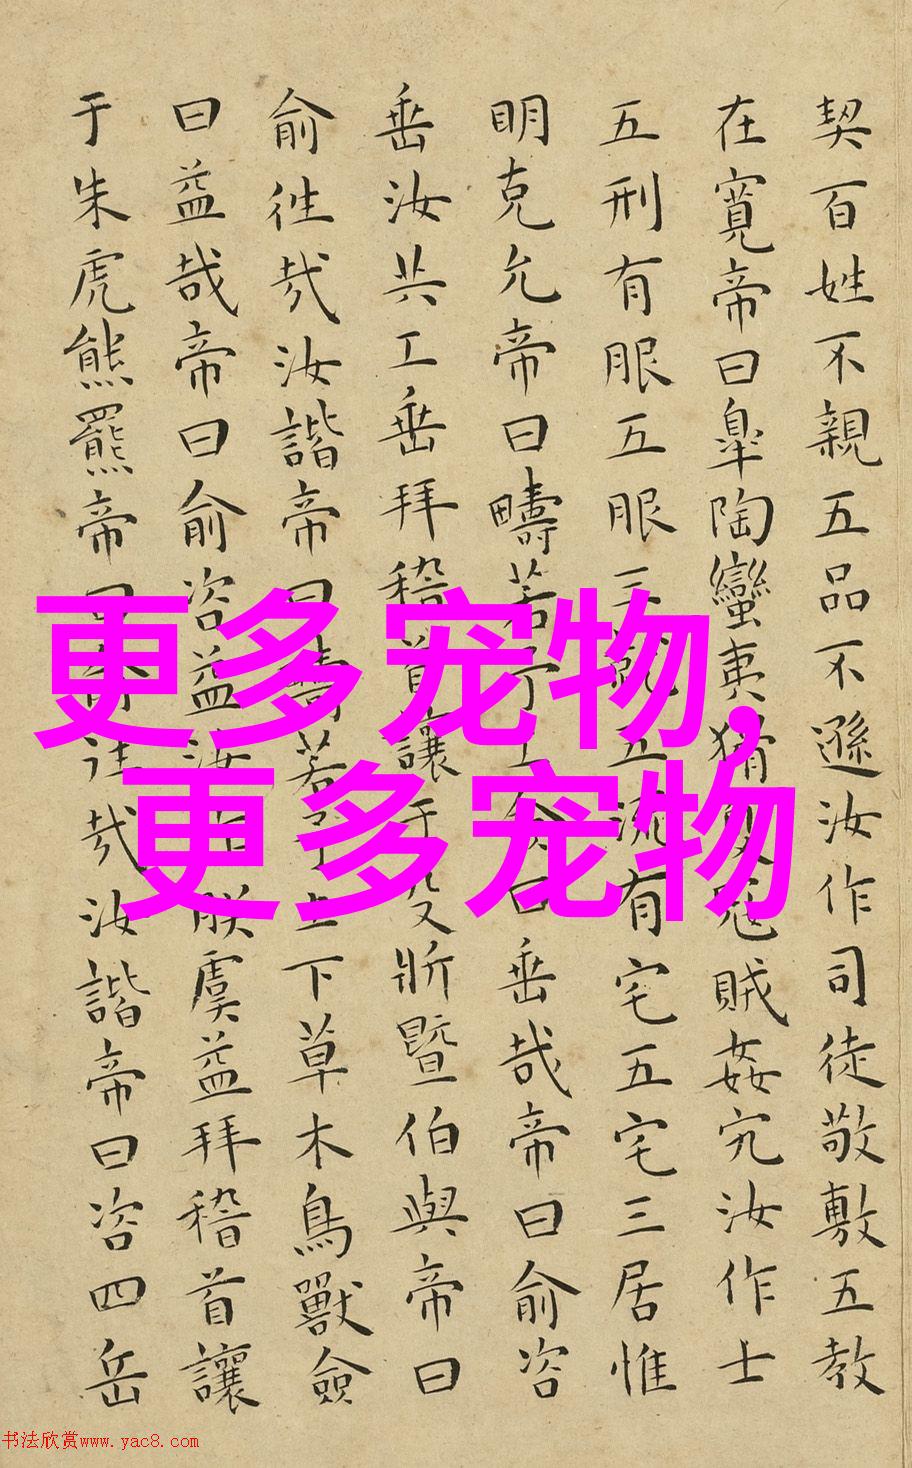 契百姓不親五品不遜汝作司徒敬敷五教
在寬帝曰皐陶蠻夷猾夏寇賊姦宄汝作士
五刑有服五服三就五流有宅五宅三居惟
明克允帝曰疇若予工僉曰垂哉帝曰俞咨
垂汝共工垂拜稽首讓于殳斨暨伯與帝曰
俞徃哉汝諧帝曰疇若予上下草木鳥獸僉
曰益哉帝曰俞咨益汝作朕虞益拜稽首讓
于朱虎熊羆帝曰俞往哉汝諧帝曰咨四岳
更多宠物,
更多宠物
书法欣赏www.yac8.com